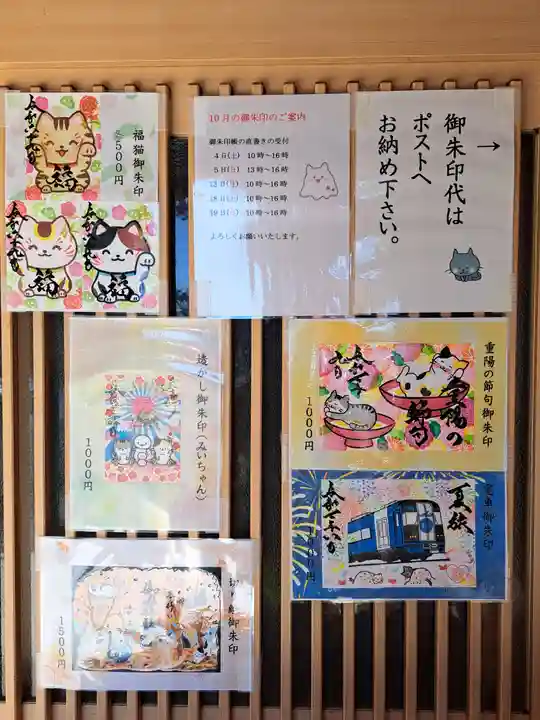 福猫御朱印
各500円
福
福
福
10月の御朱印のご案内
御朱印帳の直書きの受付
4日(土) 10時〜16時
5日(日) 13時〜16時
10時〜16時
18日(土) 10時〜16時
19日(日) 10時〜16時
よろしくお願いいたします。
→
御朱印代は
ポストへ
お納め下さい。
透かし御朱印(みいちゃん)
1000円
重陽の節句御朱印
1000円
重陽の
節句
御朱印
夏詣
切り絵御朱印
1500円